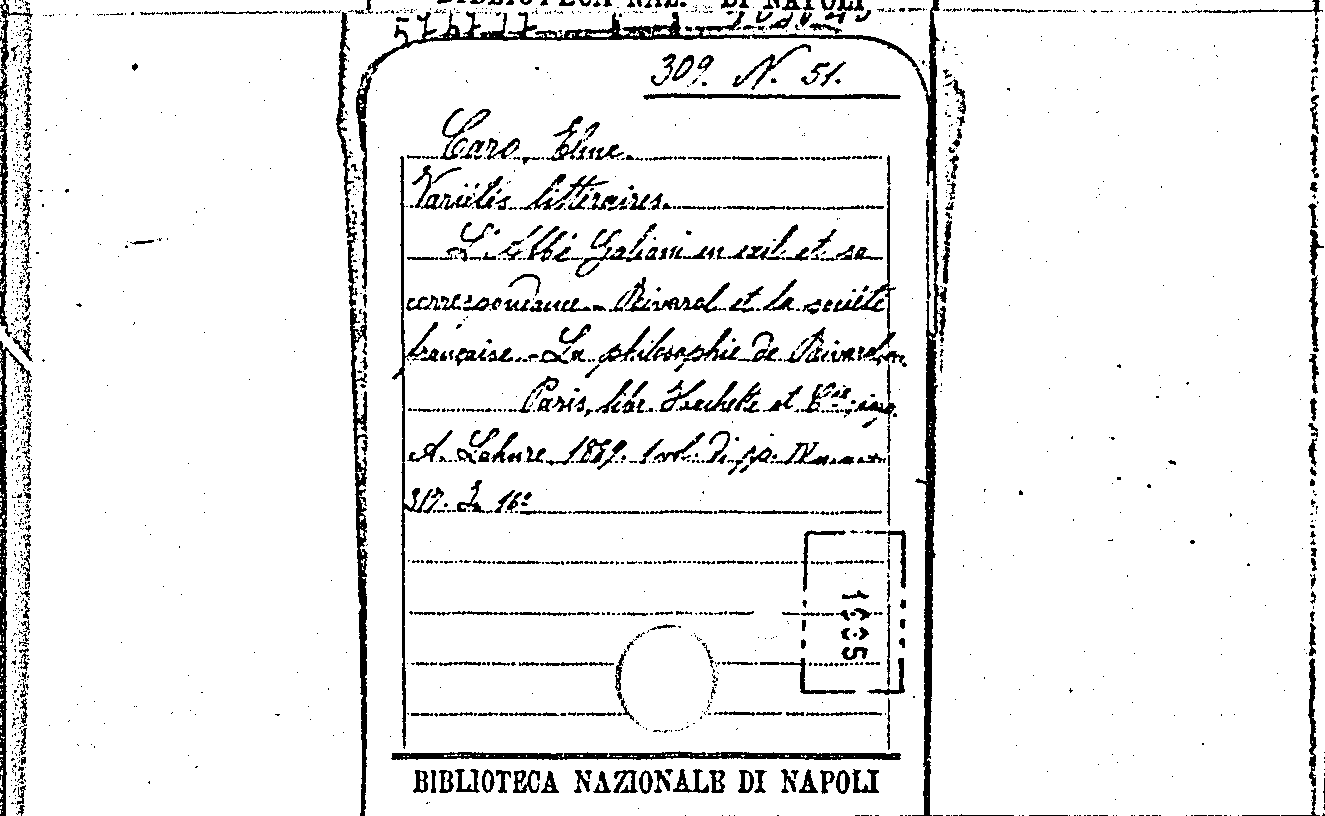 BIBLIOTECA NAZ. DI NAPOLI
309. N. 51.
Caro, Elme.
Variétés littéraires.
L'Abbé Galiani en exil et sa
correspondance - Rivarol et la société
française. - La philosophie de Rivarol
Paris, libr. Hachette et C.ie, imp.
A. Lahure, 18 1 vol. di pp. IV
317. In 16°
BIBLIOTECA NAZIONALE DI NAPOLI